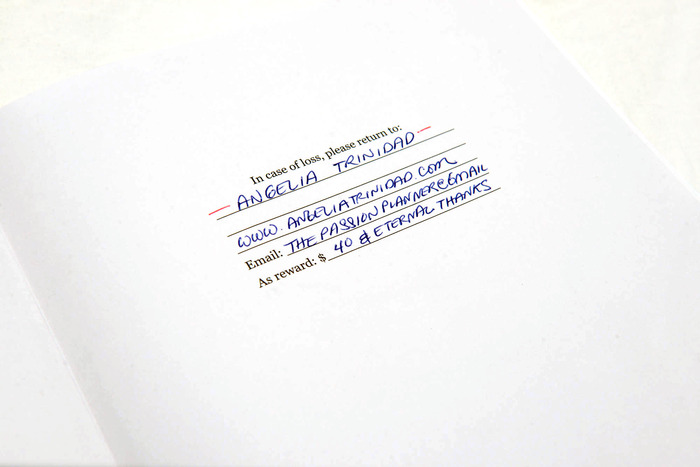 In case of loss, please return to:
ANGELIA TRINIDAD
WWW.ANGELIATRINIDAD.COM
Email: THEPASSIONPLANNER@GMAIL
As reward: $ 40 & ETERNAL THANKS